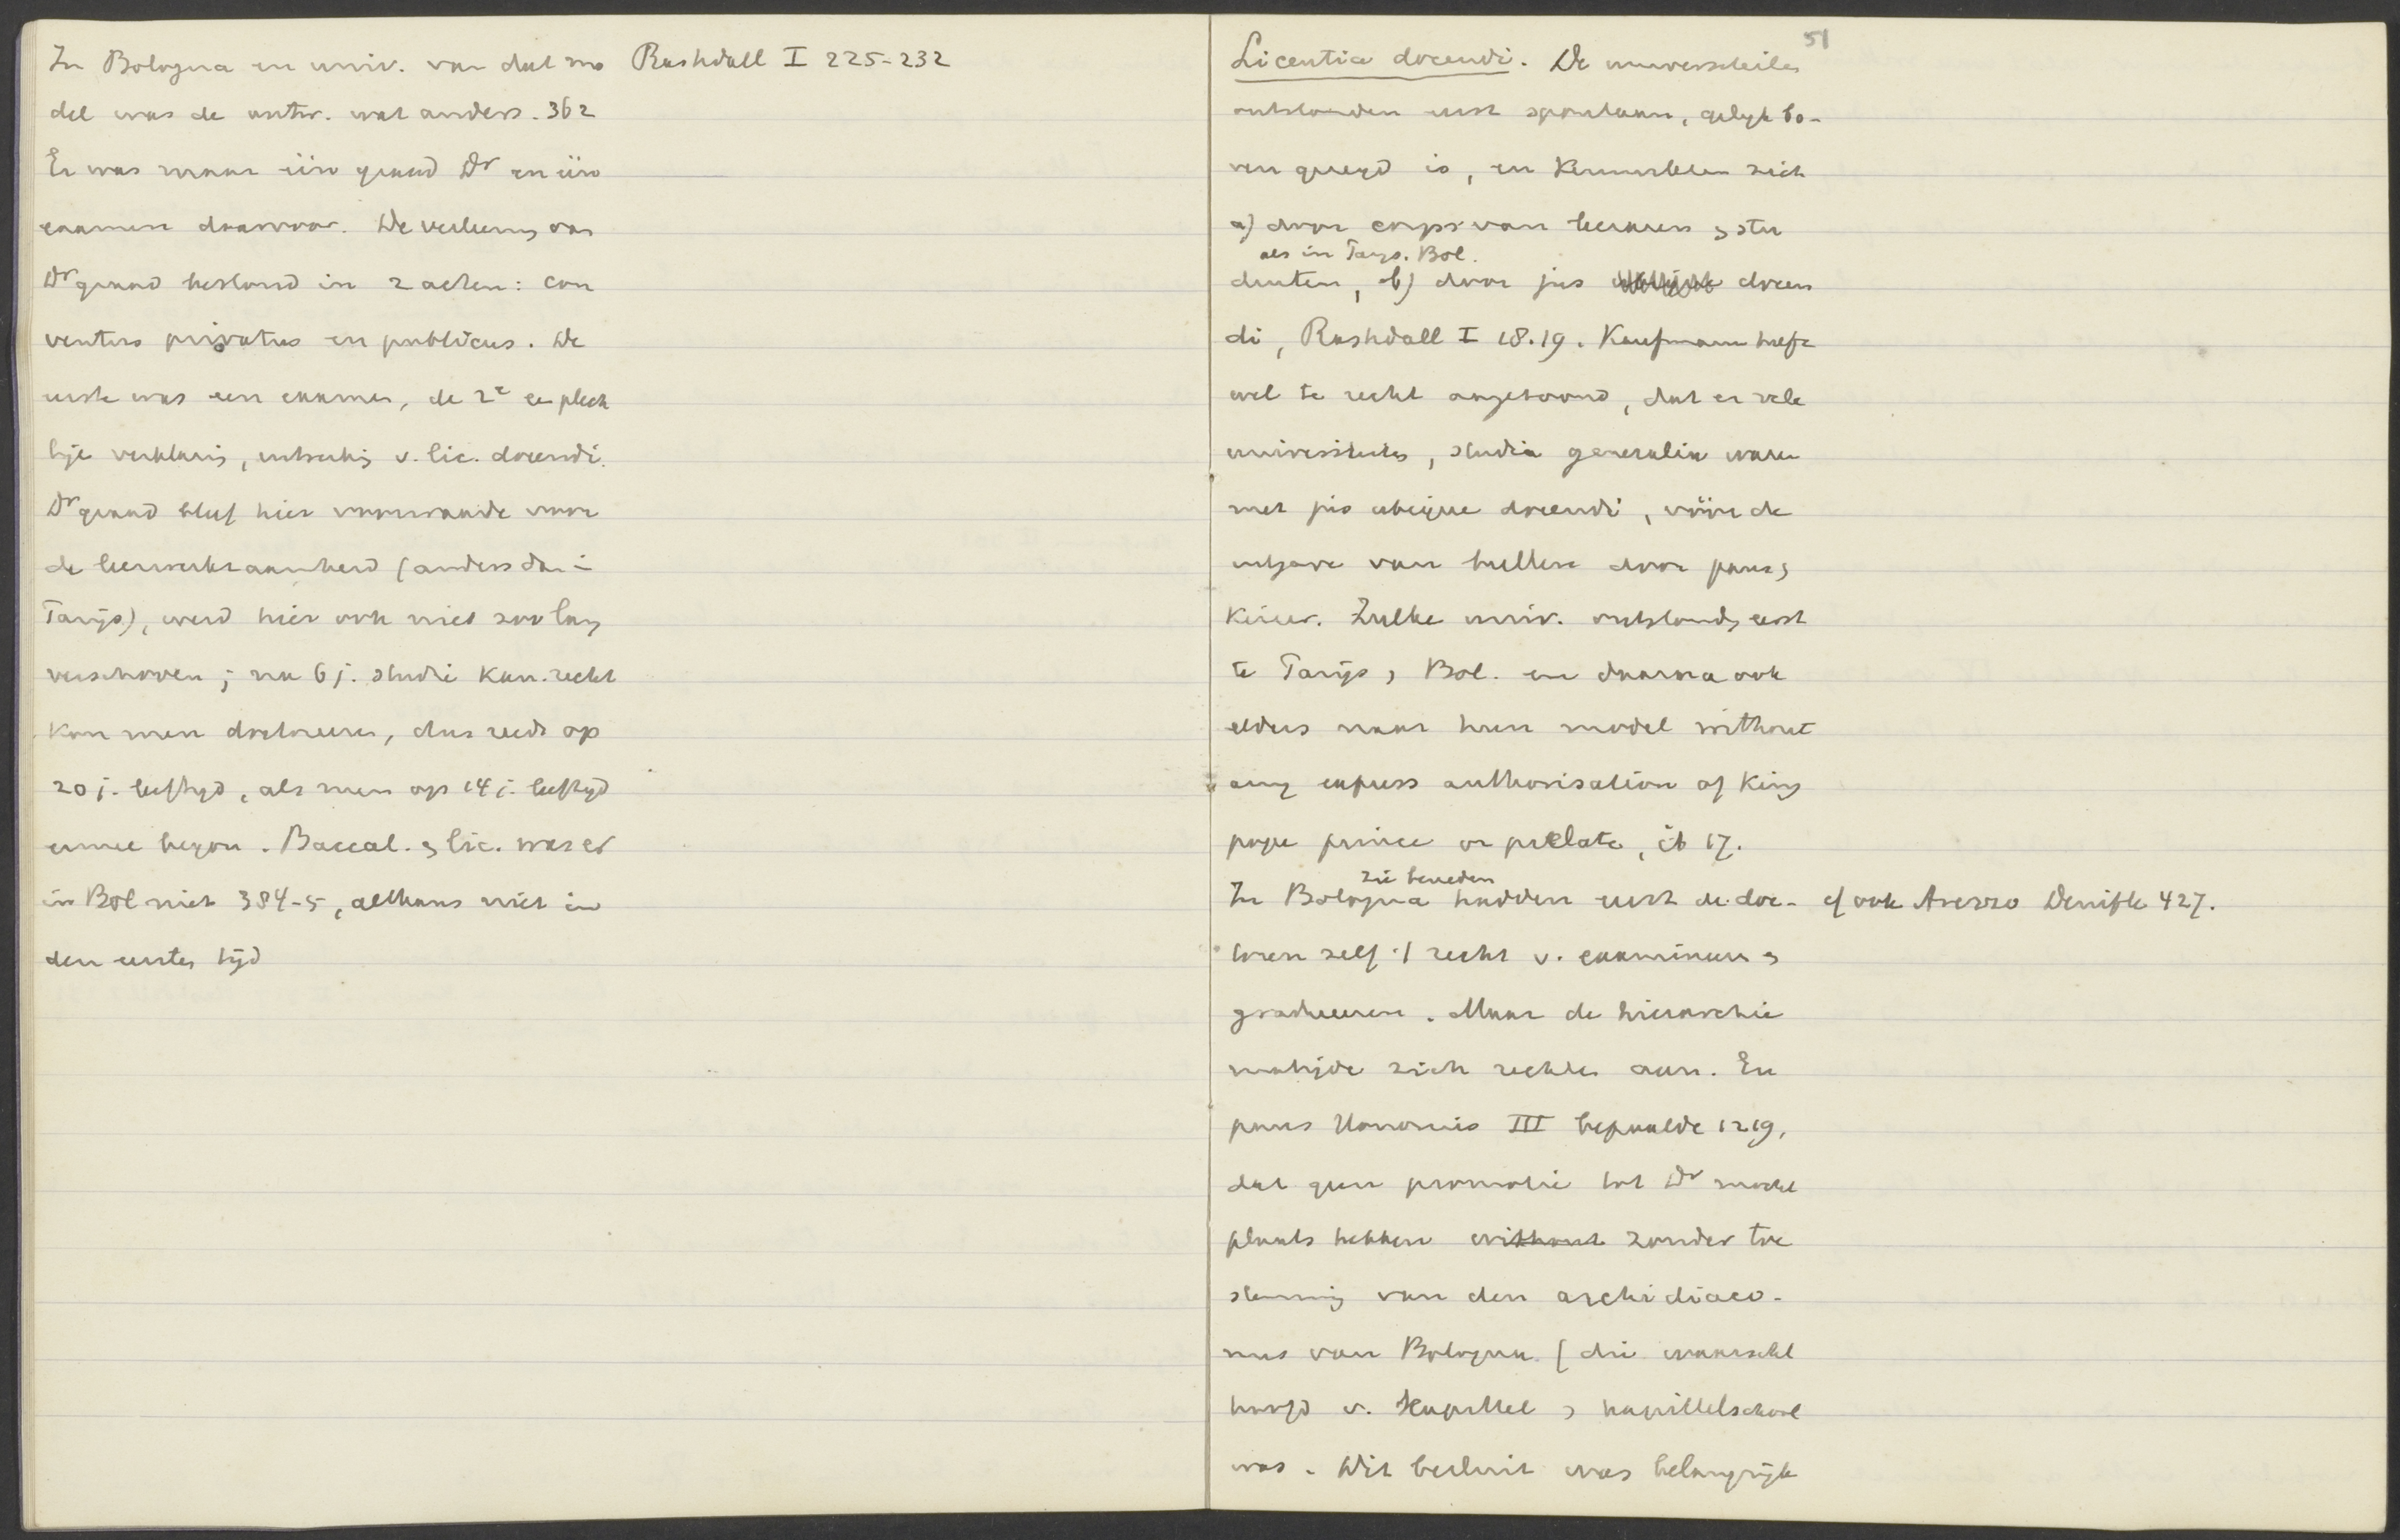 In Bologna en univ. van dat mo
del was de ontw. wat anders. 362
Er was maar één graad Dr en één
examen daarvoor. De verleening van
Dr graad bestond in 2 acten: con
ventus privatus en publicus. De
eerste was een examen, de 2e ee plech
tige verklaring, uitreiking v. lic. docendi.
Dr graad bleef hier voorwaarde voor
de leerwerkzaamheid (anders dan in
Parijs), werd hier ook niet zoo lang
verschoven; na 6 j. studie kan. recht
kon men doctoreeren, dus reeds op
20 j. leeftijd, als men op 14 j. leeftijd
ermee begon. Baccal. en lic. was er
in Bol niet 384-5, althans niet in
den eersten tijd
Rashdall I 225-232
51
Licentia docendi. De universiteiten
ontstonden eerst spontaan, gelijk bo-
ven gezegd is, en kenmerkten zich
a) door corps van leeraren en stu
als in Parijs. Bol.
denten, b) door jus docen
di, Rashdall I 18.19. Kaufmann heeft
wel te recht aangetoond, dat er vele
universiteiten, studia generalia waren
met jus ubique docendi, vóór de
uitgave van bullen door paus en
keizer. Zulke univ. ontstonden eerst
te Parijs en Bol. en daarna ook
elders naar hun model without
any express authorisation of King
pope prince or prelate, ib 17.
zie beneden
In Bologna hadden eerst de doc- cf ook Arezzo Denifle 427.
toren zelf 't recht v. examineeren en
gradueeren. Maar de hierarchie
matigde zich rechten aan. En
paus Honorius III bepaalde 1219,
dat geen promotie tot Dr mocht
plaats hebben without zonder toe
stemming van den archidiaco-
nus van Bologna (die waarschl
hoofd v. Kapittel en kapittelschool
was. Dit besluit was belangrijk